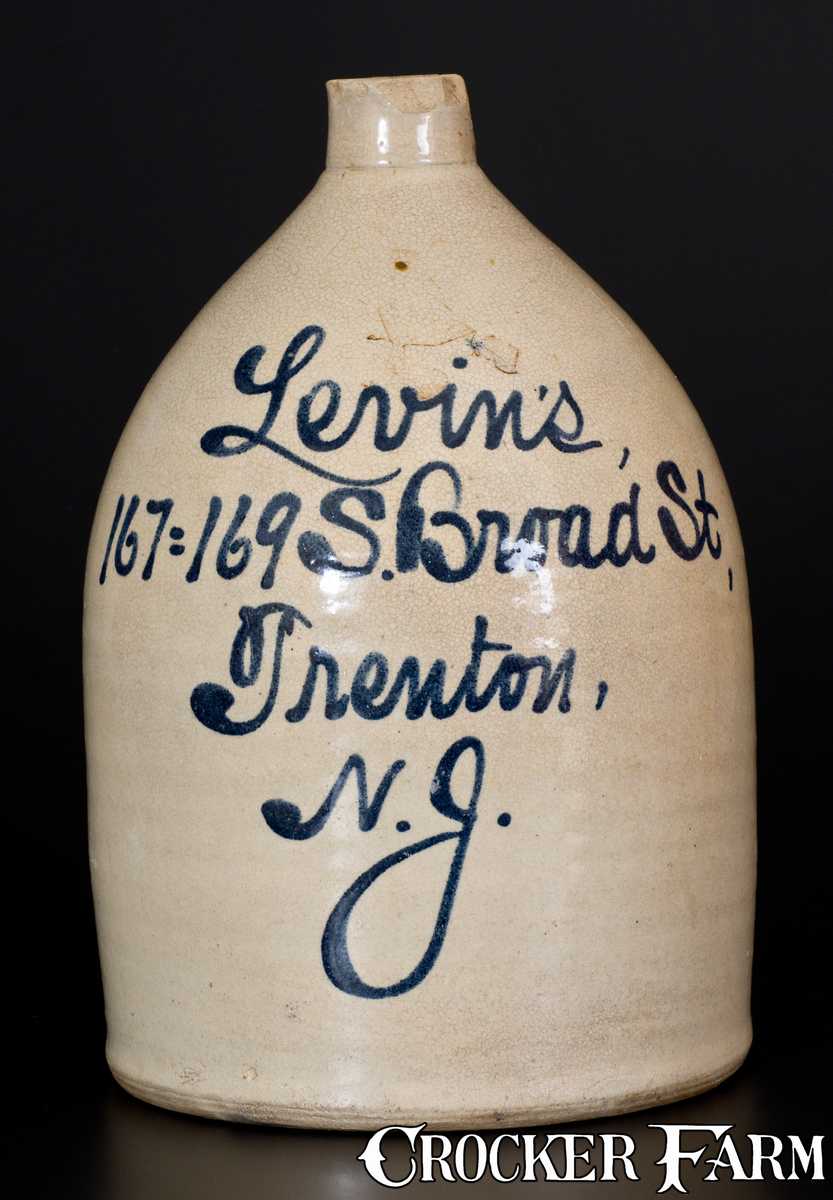 Levin's,
167=169 S. Broad St,
Trenton,
N.J.
CROCKER FARM